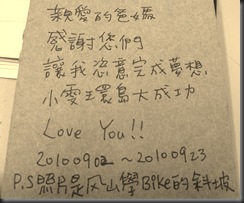 親愛的爸媽
感謝您們
讓我恣意完成夢想
小雯環島大成功
Love You!!
20100902 ~ 20100923
P.S照片是風山學Bike的斜坡